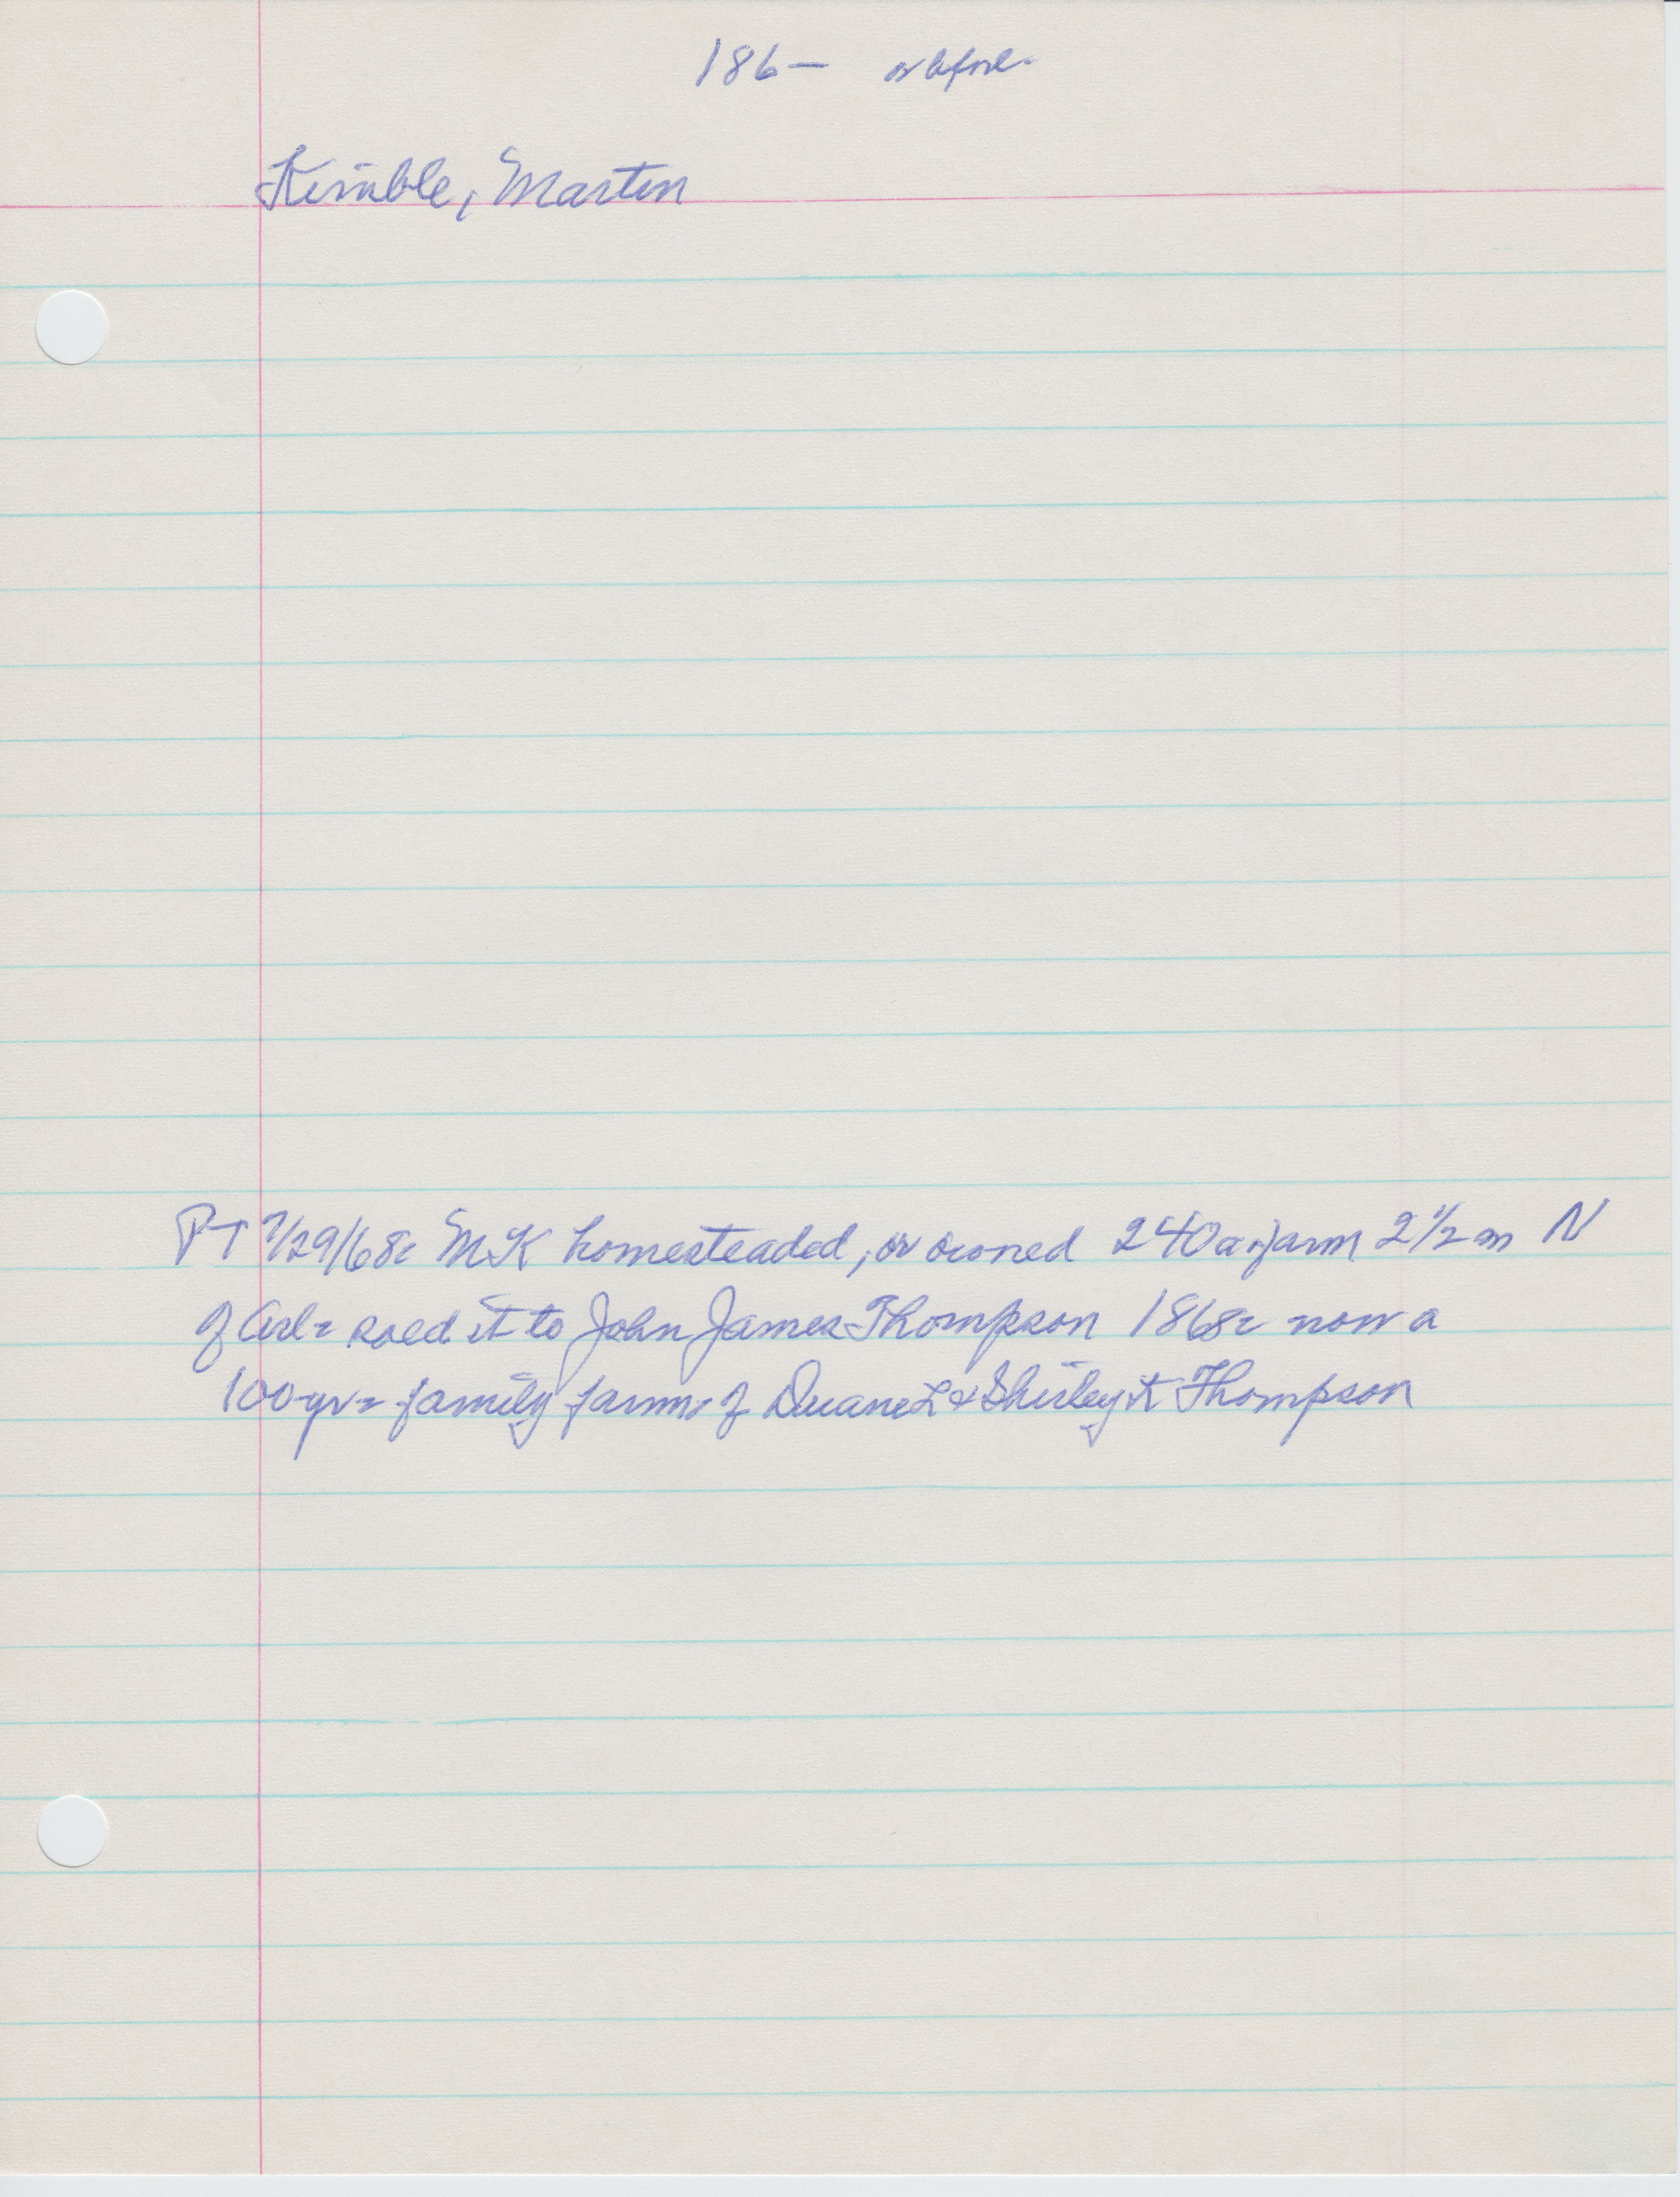 186— or before
Kimble, Martin
PT 7/29/68: MK homesteaded, or owned 240 a. farm 2 1/2 m N
of Arl= sold it to John James Thompson 1868= now a
100-yr= family farm of Duane L & Shirley K Thompson